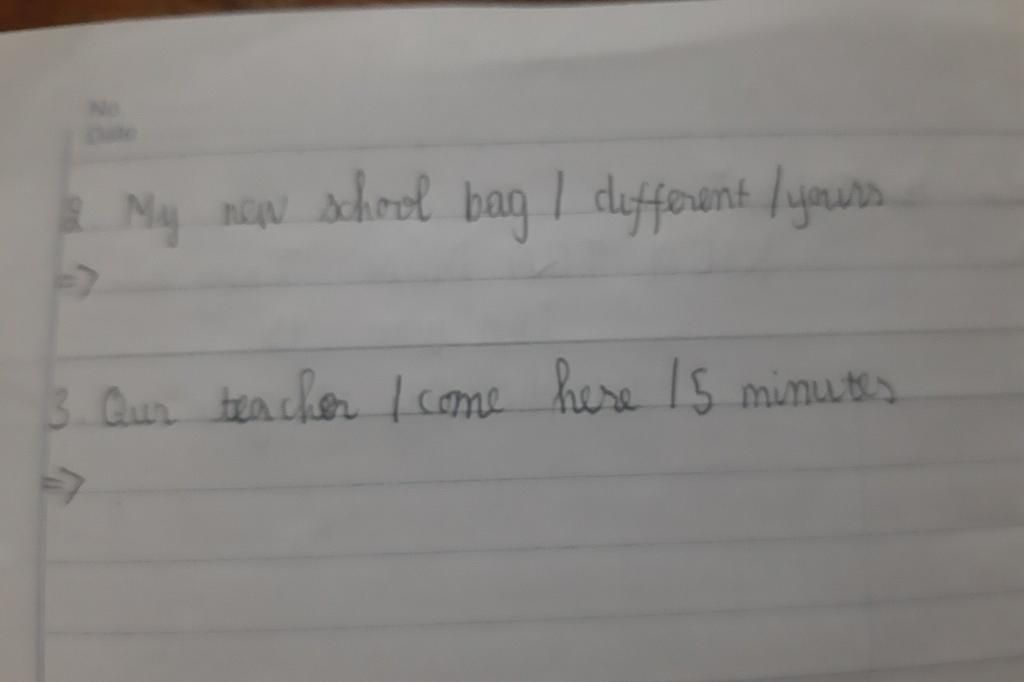 No.
Date
2. My new school bag / different / yours
=>
3. Our teacher / come here / 5 minutes
=>